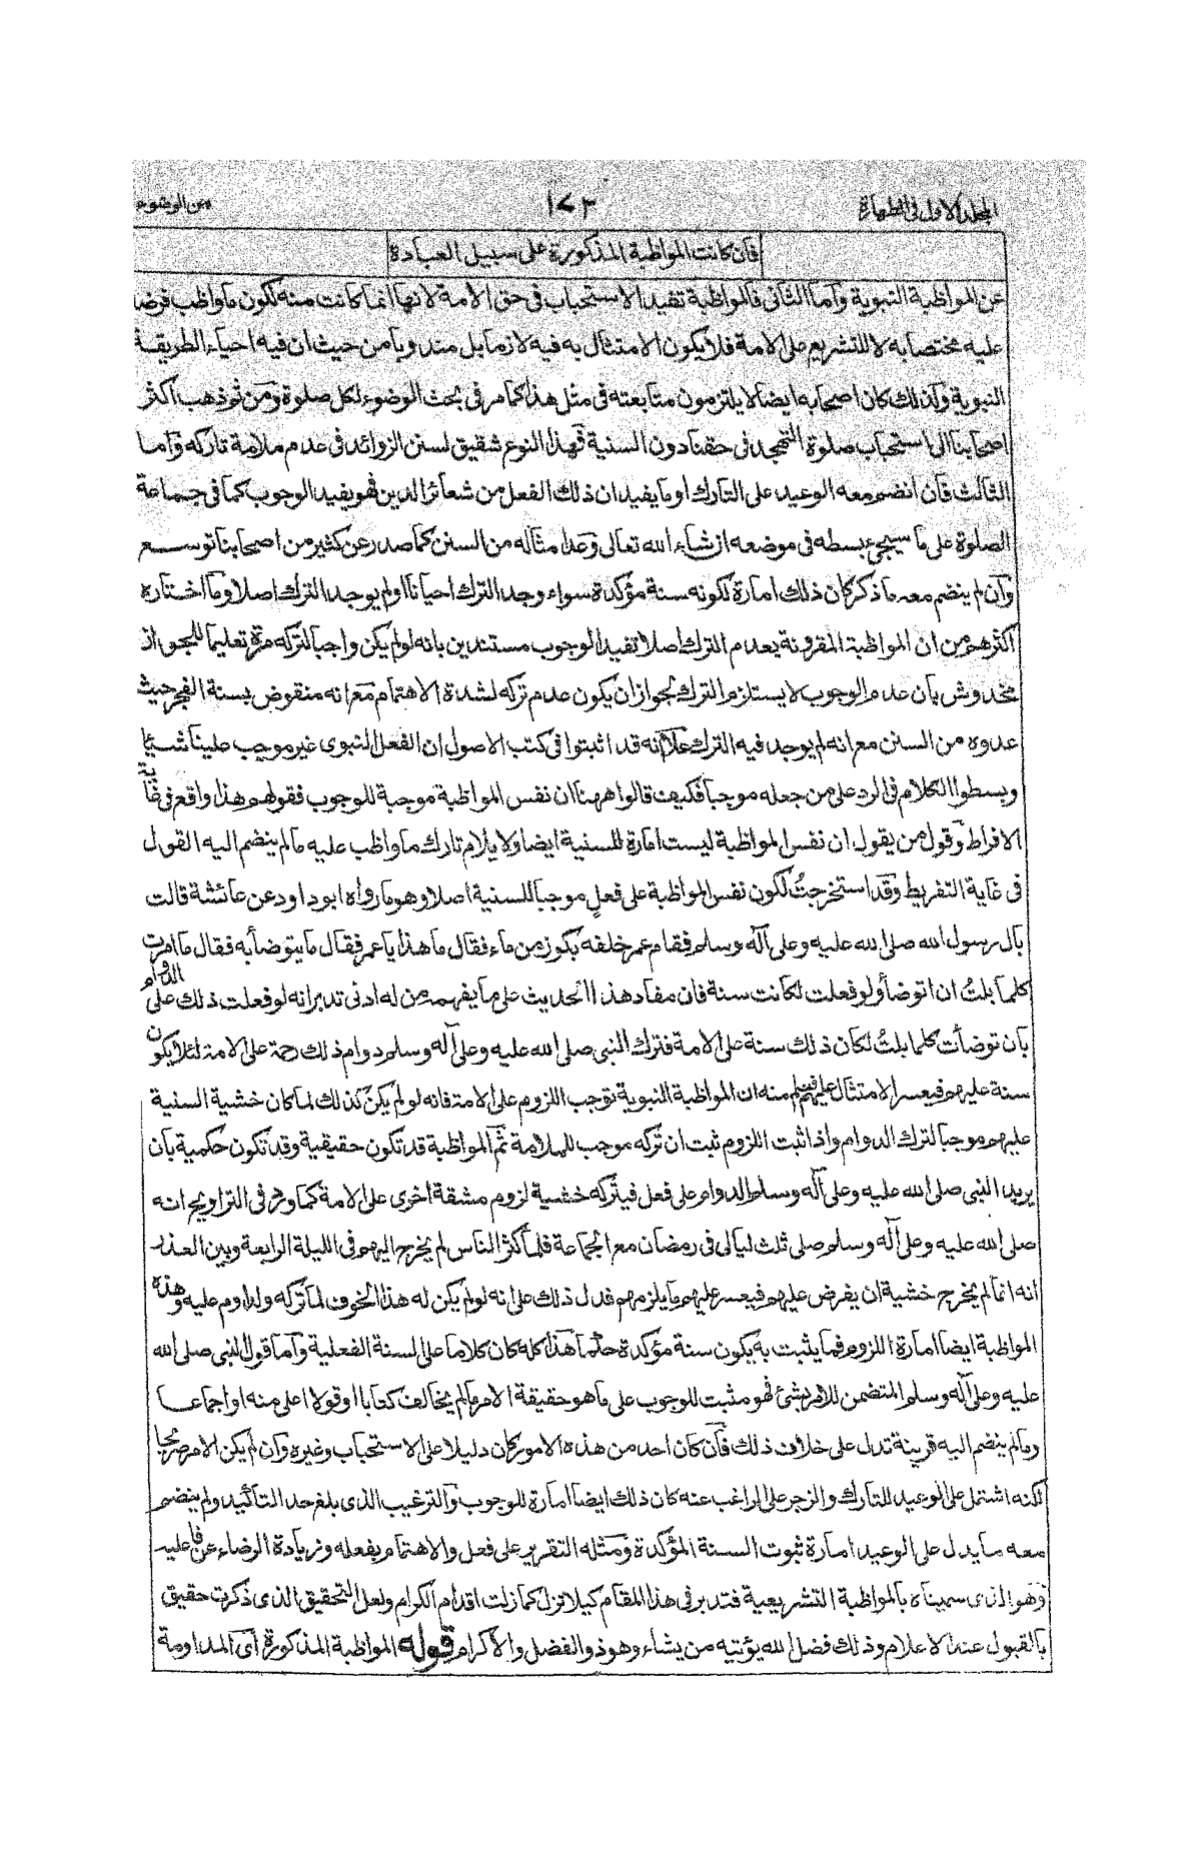 المجلد الاول فى الطهارة ١٧٣ من الوضوء
فان كانت المواظبة المذكورة على سبيل العبادة
عن المواظبة النبوية وآما الثانى فالمواظبة تفيد الاستحباب فى حق الامة لانها انما كانت منه لكون ما واظب فرضا
عليه مختصا به لا للتشريع على الامة فلا يكون الامتثال به فيه لازما بل مندوبا من حيث ان فيه احياء الطريقة
النبوية ولذلك كان اصحابه ايضا لا يلتزمون متابعته فى مثل هذا كما مر فى بحث الوضوء لكل صلوة ومن ثم ذهب اكثر
اصحابنا الى استحباب صلوة التهجد فى حقنا دون السنية فهذا النوع شقيق لسنن الزوائد فى عدم ملامة تاركه وآما
الثالث فان انضم معه الوعيد على التارك او ما يفيد ان ذلك الفعل من شعائر الدين فهو يفيد الوجوب كما فى جماعة
الصلوة على ما سيجئ بسطه فى موضعه ان شاء الله تعالى وعد امثاله من السنن كما صدر عن كثير من اصحابنا توسع
وآن لم ينضم معه ما ذكر كان ذلك امارة لكونه سنة مؤكدة سواء وجد الترك احيانا او لم يوجد الترك اصلا وما اختاره
اكثرهم من ان المواظبة المقرونة بعدم الترك اصلا تفيد الوجوب مستندين بانه لو لم يكن واجبا لتركه مرة تعليما للجواز
مخدوش بان عدم الوجوب لا يستلزم الترك لجواز ان يكون عدم تركه لشدة الاهتمام مع انه منقوض بسنة الفجر حيث
عدوه من السنن مع انه لم يوجد فيه الترك علا انه قد اثبتوا فى كتب الاصول ان الفعل النبوى غير موجب علينا شيئا
وبسطوا الكلام فى الرد على من جعله موجبا فكيف قالوا ههنا ان نفس المواظبة موجبة للوجوب فقولهم هذا واقع فى غاية
الافراط وقول من يقول ان نفس المواظبة ليست امارة للسنية ايضا ولا يلام تارك ما واظب عليه ما لم ينضم اليه القول
فى غاية التفريط وقد استخرجتُ لكون نفس المواظبة على فعل موجبا للسنية اصلا وهو ما رواه ابو داود عن عائشة قالت
بال رسول الله صلى الله عليه وعلى آله وسلم فقام عمر خلفه بكوز من ماء فقال ما هذا يا عمر فقال ما يتوضأ به فقال ما امرت
كلما بلتُ ان اتوضأ ولو فعلت لكانت سنة فان مفاد هذا الحديث على ما يفهمه من له ادنى تدبر انه لو فعلت ذلك على الدوام
بان توضأت كلما بلتُ لكان ذلك سنة على الامة فترك النبى صلى الله عليه وعلى آله وسلم دوام ذلك رحمة على الامة لئلا يكون
سنة عليهم فيعسر الامتثال عليهم فعلم منه ان المواظبة النبوية توجب اللزوم على الامة فانه لو لم يكن كذلك لما كان خشية السنية
عليهم موجبا لترك الدوام واذا ثبت اللزوم ثبت ان تركه موجب للملامة ثم المواظبة قد تكون حقيقية وقد تكون حكمية بان
يريد النبى صلى الله عليه وعلى آله وسلم الدوام على فعل فيتركه خشية لزوم مشقة اخرى على الامة كما ورد فى التراويح انه
صلى الله عليه وعلى آله وسلم صلى ثلث ليالى فى رمضان مع الجماعة فلما كثر الناس لم يخرج اليهم فى الليلة الرابعة وبين العذر
انه انما لم يخرج خشية ان يفرض عليهم فيعسر عليهم ما يلزمهم فدل ذلك على انه لو لم يكن له هذا الخوف لما تركه ولداوم عليه وهذه
المواظبة ايضا امارة اللزوم فما يثبت به يكون سنة مؤكدة حتما هذا كله كان كلاما على السنة الفعلية وآما قول النبى صلى الله
عليه وعلى آله وسلم المتضمن للامر بشئ فهو مثبت للوجوب على ما هو حقيقة الامر ما لم يخالف كتابا او قولا اعلى منه او اجماعا
وما لم ينضم اليه قرينة تدل على خلاف ذلك فآن كان احد من هذه الامور كان دليلا على الاستحباب وغيره وآن لم يكن الامر صريحا
لكنه اشتمل على الوعيد للتارك والزجر على الراغب عنه كان ذلك ايضا امارة للوجوب وآلترغيب الذى بلغ حد التأكيد ولم ينضم
معه ما يدل على الوعيد امارة ثبوت السنة المؤكدة ومثله التقرير على فعل والاهتمام بفعله وزيادة الرضاء عن فاعليه
وهو الذى سميناه بالمواظبة التشريعية فتدبر فى هذا المقام كيلا تزل كما زلت اقدام الكرام ولعل التحقيق الذى ذكرت حقيق
بالقبول عند الاعلام وذلك فضل الله يؤتيه من يشاء وهو ذو الفضل والاكرام قوله المواظبة المذكورة آى المداومة